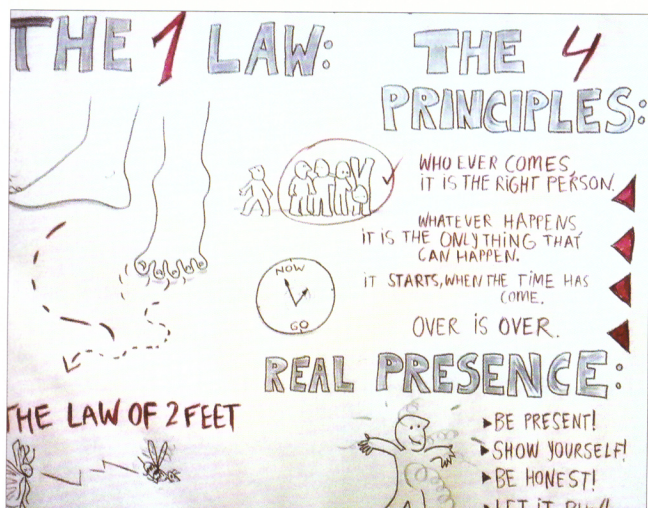 THE 1 LAW:
THE LAW OF 2 FEET
THE 4
PRINCIPLES:
WHO EVER COMES,
IT IS THE RIGHT PERSON.
WHATEVER HAPPENS
IT IS THE ONLY THING THAT
CAN HAPPEN.
IT STARTS, WHEN THE TIME HAS
COME.
OVER IS OVER.
NOW
GO
REAL PRESENCE:
BE PRESENT!
SHOW YOURSELF!
BE HONEST!
LET IT